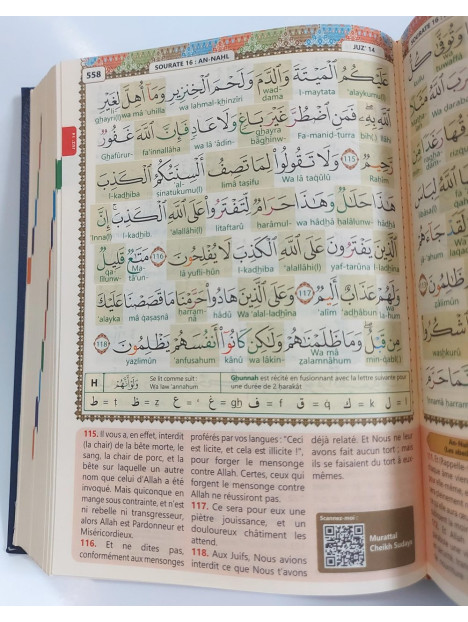 558
SOURATE 16 : AN-NAHL
JUZ' 14
عَلَيْكُمُ الْمَيْتَةَ وَالدَّمَ وَلَحْمَ الْخِنْزِيرِ وَمَا أُهِلَّ لِغَيْرِ
ghayri(l) wa mâ 'uhilla wa lahmal-khinzîri wad-dama l-maytata 'alaykumu(l)
اللَّهِ بِهِ فَمَنِ اضْطُرَّ غَيْرَ بَاغٍ وَلَا عَادٍ فَإِنَّ اللَّهَ غَفُورٌ
Ghafûrur- fa'innallâha wa lâ 'âdin- ghayra bâghin- Fa-maniḍ-ṭurra bih(i)
رَحِيمٌ 115 وَلَا تَقُولُوا لِمَا تَصِفُ أَلْسِنَتُكُمُ الْكَذِبَ
l-kadhiba 'al-sinatukumu(l) limâ taṣifu Wa lâ taqûlû Raḥîm
هَذَا حَلَالٌ وَهَذَا حَرَامٌ لِتَفْتَرُوا عَلَى اللَّهِ الْكَذِبَ إِنَّ
'Inna(l) l-kadhib 'alallâhi(l) litaftarû harâmul- wa hâdhâ halâluw- hâdhâ
الَّذِينَ يَفْتَرُونَ عَلَى اللَّهِ الْكَذِبَ لَا يُفْلِحُونَ 116 مَتَاعٌ قَلِيلٌ
qa(lîlunw- Ma-tâ'un- lâ yufli-ḥûn l-kadhiba 'alallâhi(l) yaf-tarûna l-ladhîna
وَلَهُمْ عَذَابٌ أَلِيمٌ 117 وَعَلَى الَّذِينَ هَادُوا حَرَّمْنَا مَا قَصَصْنَا عَلَيْكَ
'alayka mâ qaṣaṣnâ harram-nâ hâdû Wa 'alal-ladhîna 'alîm 'adhâbun wa la-hum
مِنْ قَبْلُ وَمَا ظَلَمْنَاهُمْ وَلَكِنْ كَانُوا أَنْفُسَهُمْ يَظْلِمُونَ 118
yaẓlimûn 'anfusahum kânû wa lâkin- Wa mâ ẓalamnâhum min-qabl(i)
H Se lit comme suit Wa'law 'annahum وَلَوْ أَنَّهُمْ Ghunnah est récité en fusionnant avec la lettre suivante pour une durée de 2 ḥarakât
ط = ṭ ظ = ẓ ع = ' غ = gh ف = f ق = q ك = k ل = l
115. Il vous a, en effet, interdit
(la chair) de la bête morte, le
sang, la chair de porc, et la
bête sur laquelle un autre
nom que celui d'Allah a été
invoqué. Mais quiconque en
mange sous contrainte, et n'est
ni rebelle ni transgresseur,
alors Allah est Pardonneur et
Miséricordieux.
116. Et ne dites pas,
conformément aux mensonges
proférés par vos langues : "Ceci
est licite, et cela est illicite !",
pour forger le mensonge
contre Allah. Certes, ceux qui
forgent le mensonge contre
Allah ne réussiront pas.
117. Ce sera pour eux une
piètre jouissance, et un
douloureux châtiment les
attend.
118. Aux Juifs, Nous avions
interdit ce que Nous t'avons
déjà relaté. Et Nous ne leur
avons fait aucun tort ; mais
ils se faisaient du tort à eux-
mêmes.
Scannez-moi :
Murattal
Cheikh Sudays